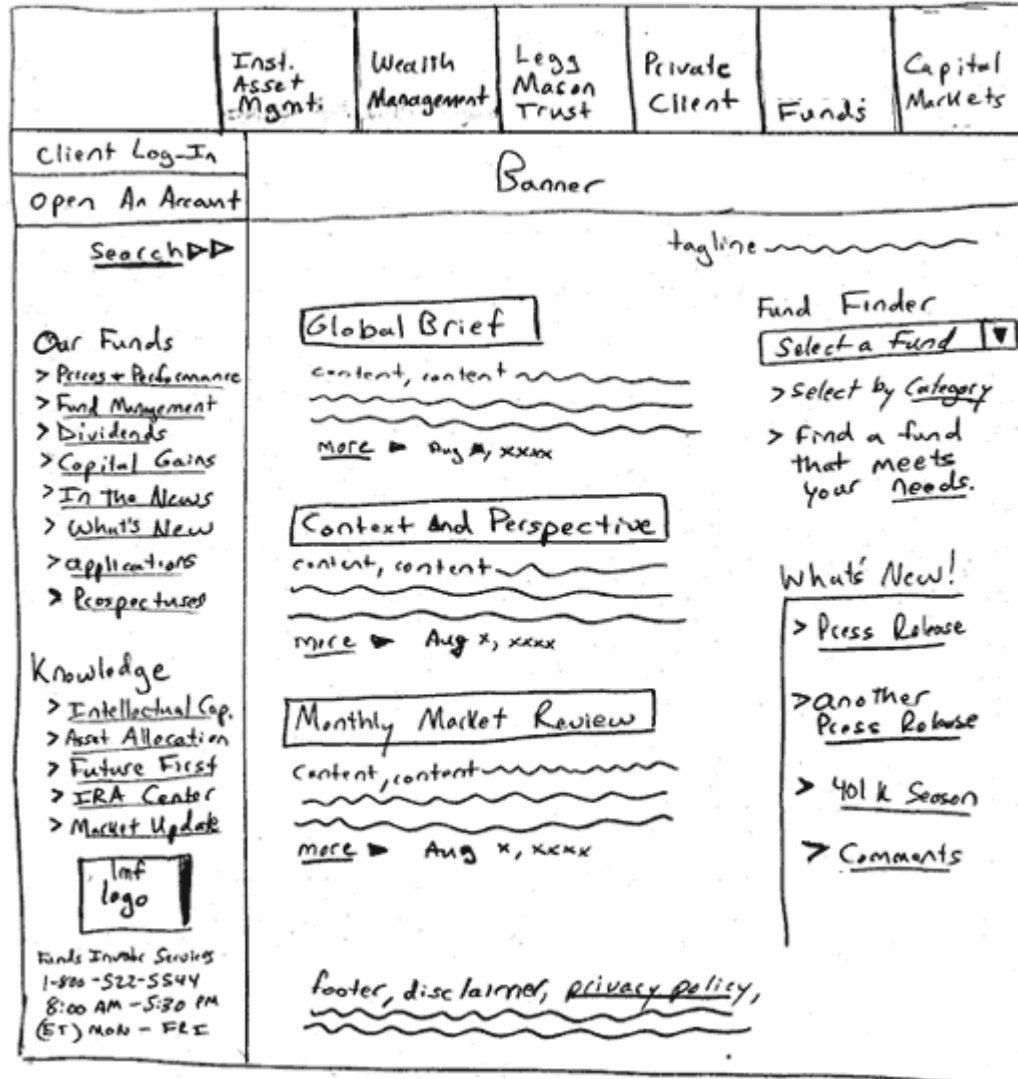 Inst.
Asset
Mgmt.
Wealth
Management
Legg
Mason
Trust
Private
Client
Funds
Capital
Markets
Client Log-In
Open An Account
Banner
Search
tagline
Our Funds
> Prices + Performance
> Fund Management
> Dividends
> Capital Gains
> In the News
> What's New
> applications
> Prospectuses
Knowledge
> Intellectual Cap.
> Asset Allocation
> Future First
> IRA Center
> Market Update
lmf
logo
Funds Services
1-800-522-5544
8:00 AM - 5:30 PM
(ET) MON - FRI
Global Brief
content, content
more ▶ Aug , xxxx
Context And Perspective
content, content
more ▶ Aug x, xxxx
Monthly Market Review
Content, content
more ▶ Aug x, xxxx
Fund Finder
Select a Fund ▼
> Select by Category
> Find a fund
that meets
your needs.
What's New!
> Press Release
> another
Press Release
> 401 k Season
> Comments
footer, disclaimer, privacy policy,